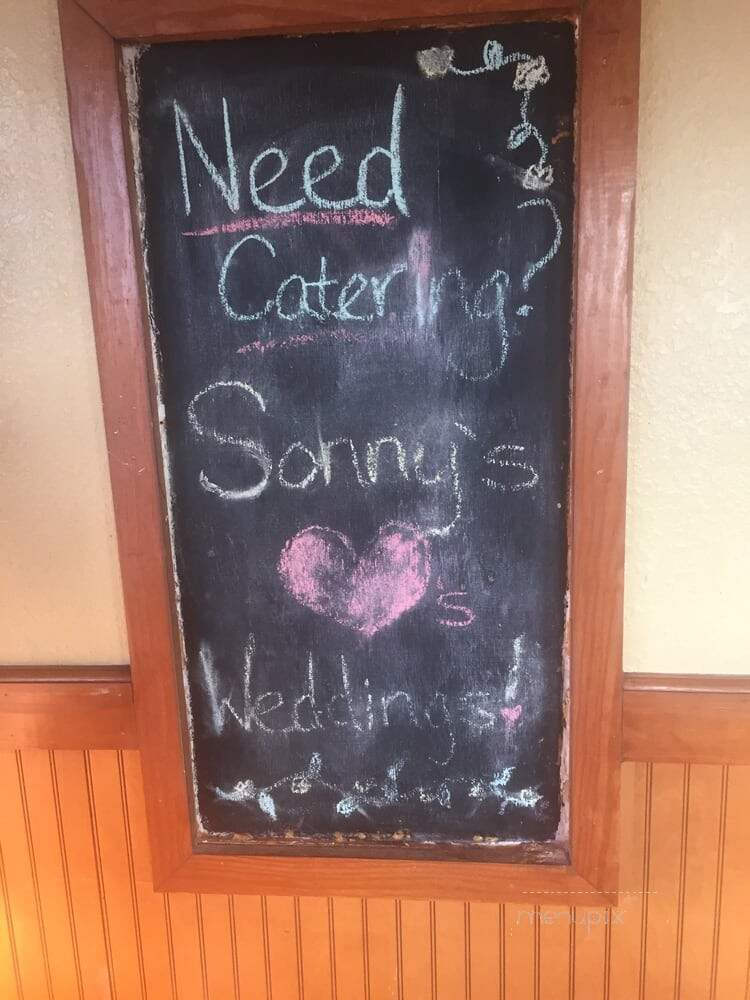 Need
Catering?
Sonny's
's
Weddings!
menupix